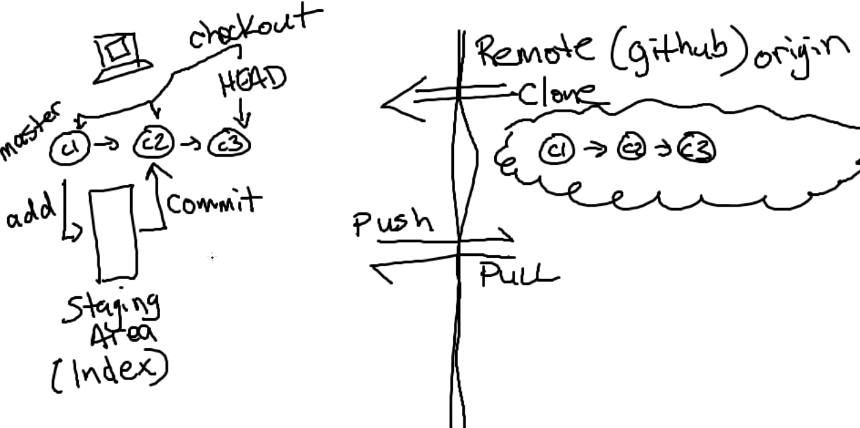 checkout
HEAD
master
c1
c2
c3
add
commit
Staging
Area
(Index)
Remote (github) origin
Clone
c1
c2
c3
Push
PULL